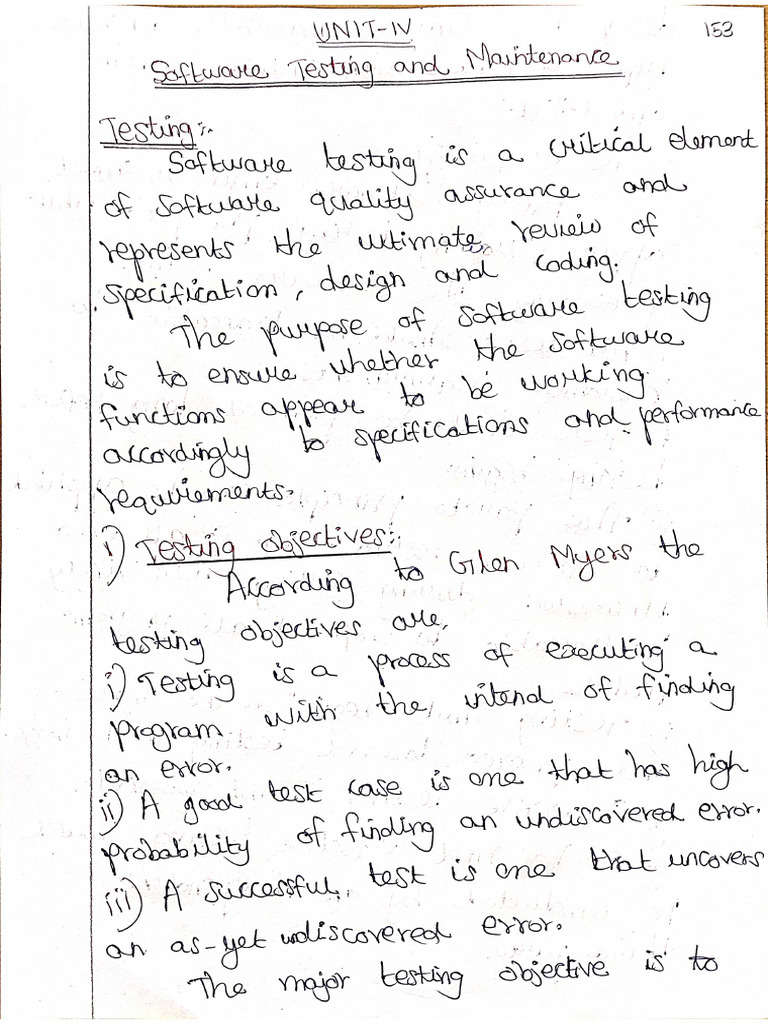 UNIT-IV
153
Software Testing and Maintenance
Testing:-
Software testing is a critical element
of software quality assurance and
represents the ultimate review of
specification, design and coding.
The purpose of software testing
is to ensure whether the software
functions appear to be working
accordingly to specifications and performance
requirements.
i) Testing objectives:-
According to Glen Myers the
testing objectives are,
i) Testing is a process of executing a
program with the intend of finding
an error.
ii) A good test case is one that has high
probability of finding an undiscovered error.
iii) A successful test is one that uncovers
an as-yet undiscovered error.
The major testing objective is to